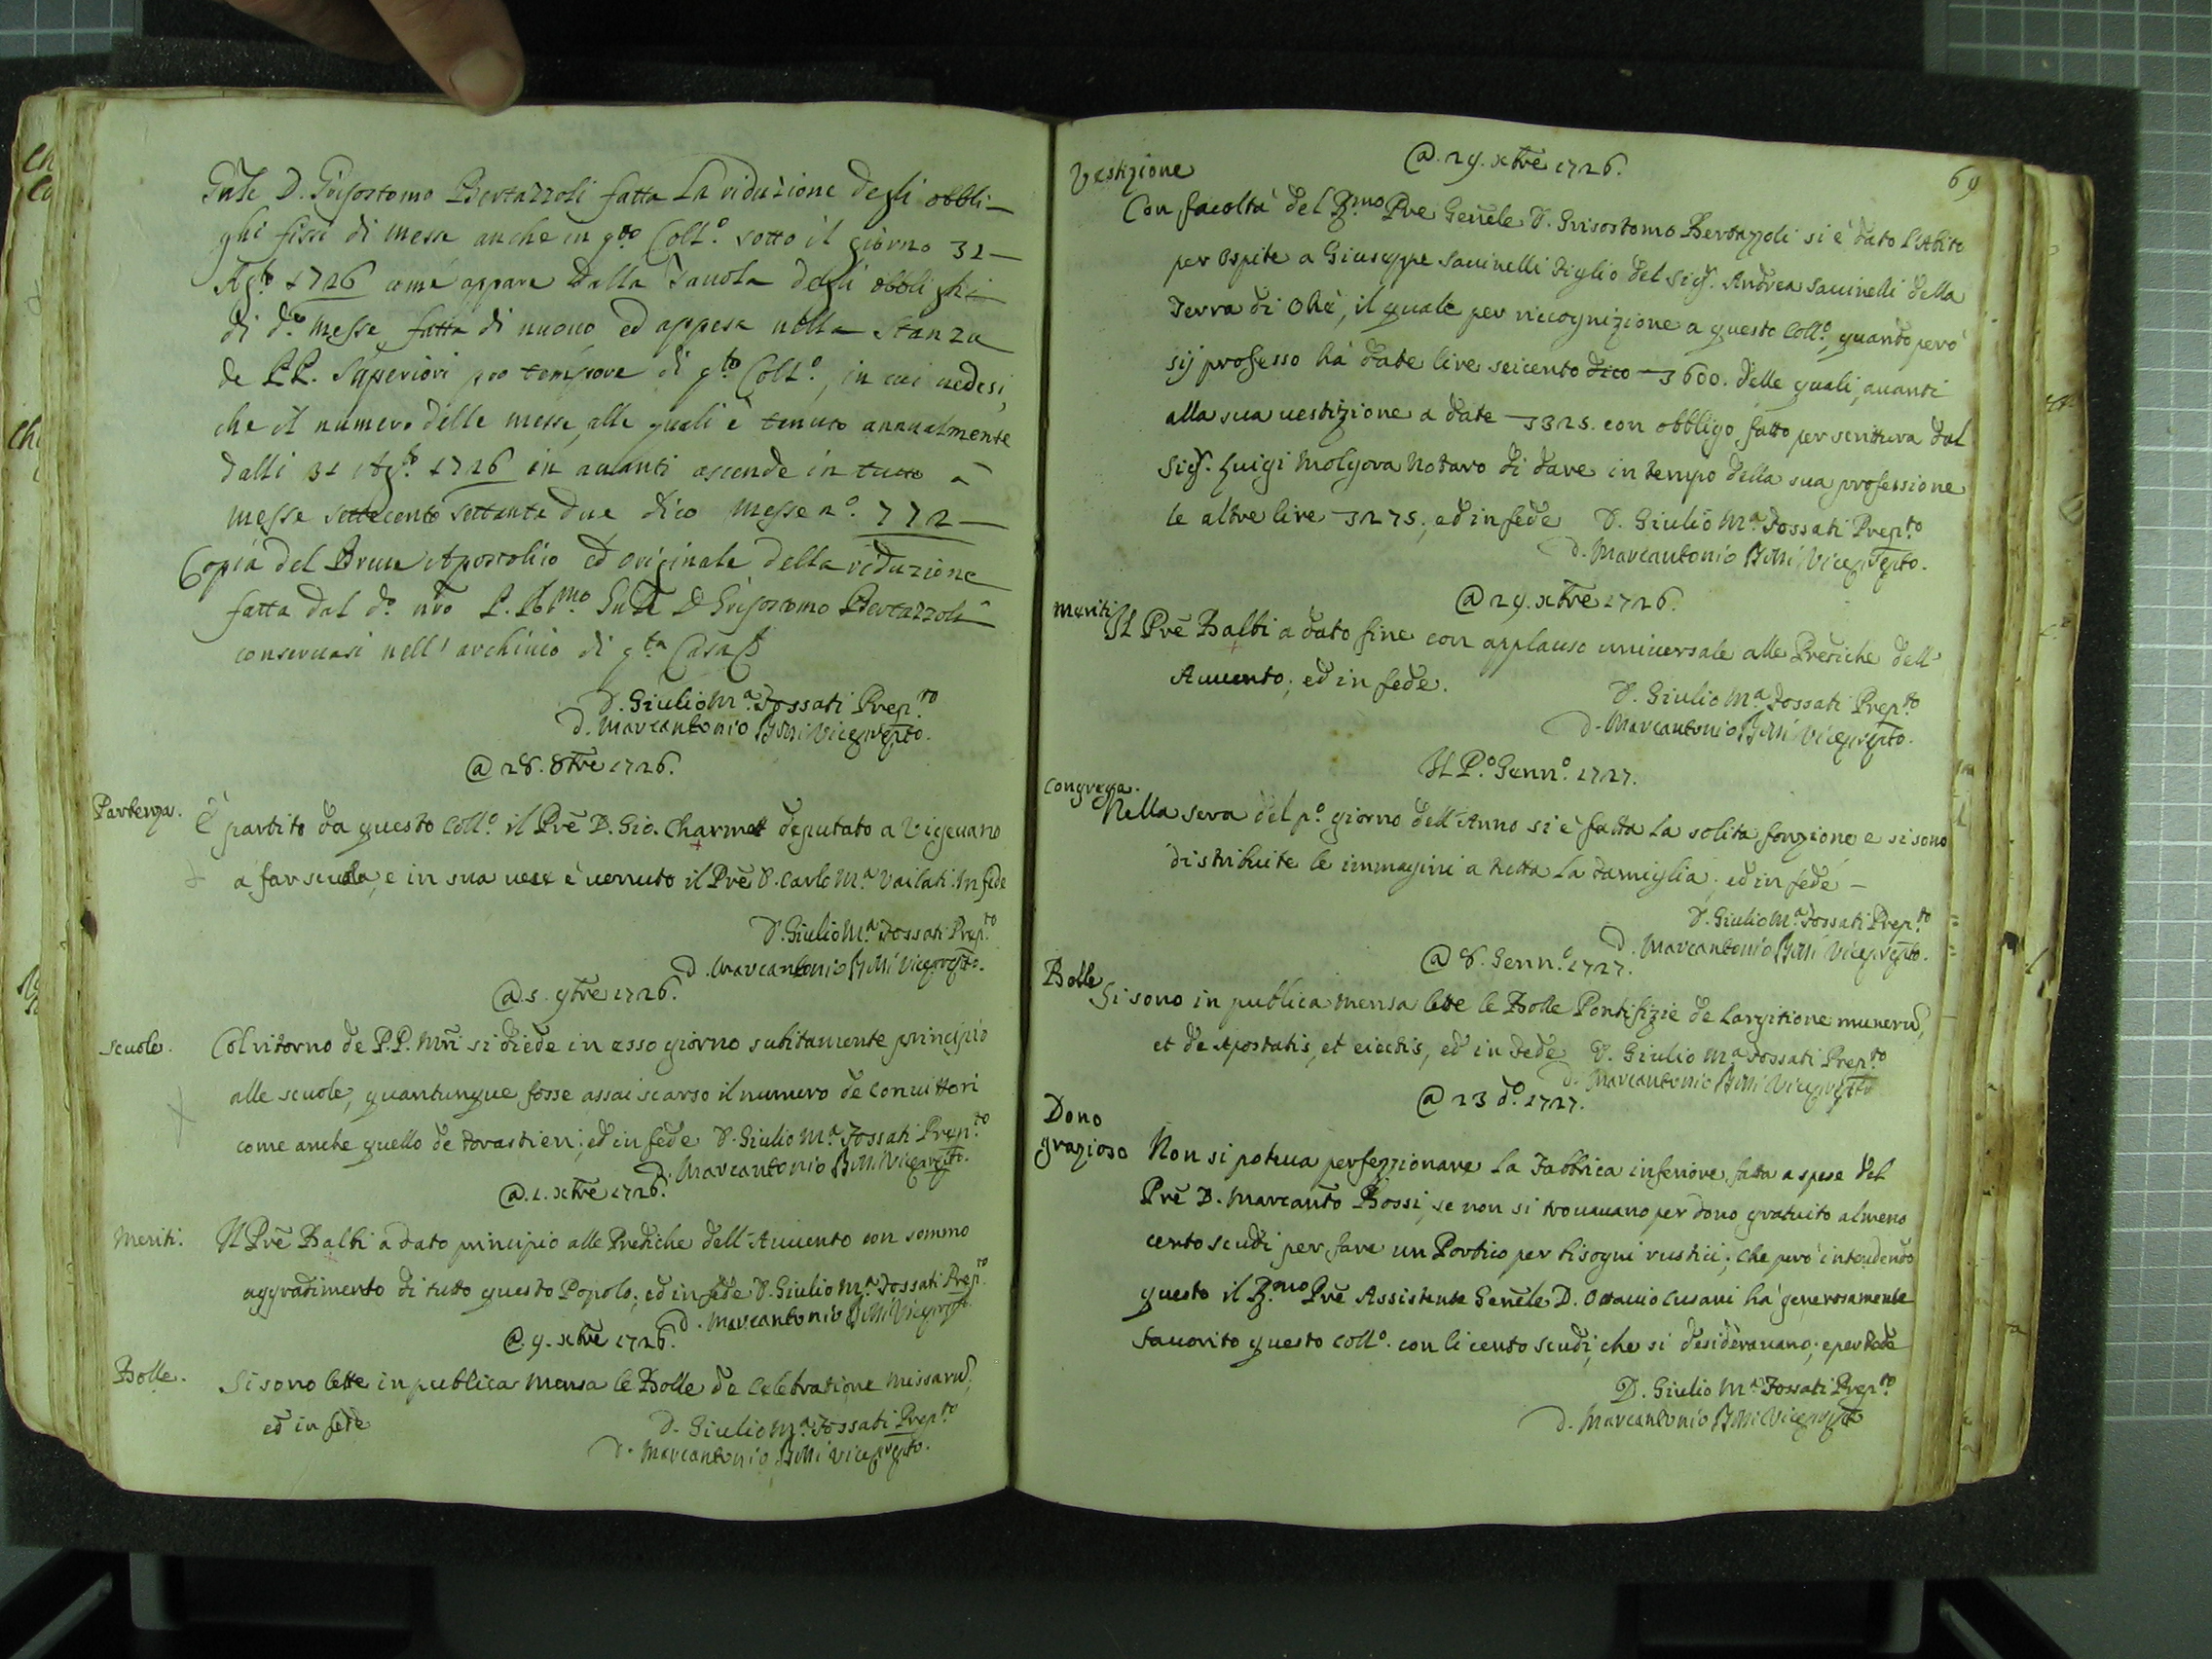 Gnle D. Grisostomo Bertazzoli fatta la riduzione degli obbli-
ghi fissi di messe anche in q.to Coll.o sotto il giorno 31
Ag.to 1726 come appare dalla Tauola degli obblighi
di d.e messe fatta di nuouo ed appesa nella stanza
de PP. Superiori pro tempore di q.to Coll.o, in cui uedesi,
che il numero delle messe, alle quali è tenuto annualmente
dalli 31 Ag.to 1726 in auanti ascende in tutto a
messe settecento settanta due dico messe n.o 772
Copia del Breue Apostolico ed originale della riduzione
fatta dal d.o nrõ P. Rev.mo Gnle D Grisostomo Bertazzoli
conseruasi nell'archiuio di q.ta Casa
D. Giulio M.a Fossati Prep.to
D. Marcantonio Vicepreptо.
@ 28. 8bre 1726.
Partenza. È partito da questo Coll.o il Prẽ D. Gio. Charmet deputato a Vigeuano
a far scuola, e in sua uece è uenuto il Prẽ D. Carlo M.a Vailati. In fede
D. Giulio M.a Fossati Prep.to
D. Marcantonio Vicepreptо.
@. 5. 9bre 1726.
Scuole. Col ritorno de P.P. Mri si diede in esso giorno subitamente principio
alle scuole, quantunque fosse assai scarso il numero de Conuittori
come anche quello de Forastieri; ed in fede D. Giulio M.a Fossati Prep.to
D. Marcantonio Vicepreptо.
@. 1. Xbre 1726.
Meriti. Il Prẽ Balbi a dato principio alle Prediche dell'Auuento con sommo
aggradimento di tutto questo Popolo; ed in fede D. Giulio M.a Fossati Prep.to
D. Marcantonio Vicepreptо.
@. 9. Xbre 1726.
Bolle. Si sono lette in publica Mensa le Bolle de Celebratione Missarũ;
ed in fede
D. Giulio M.a Fossati Prep.to
D. Marcantonio Vicepreptо.
69
@. 29. Xbre 1726.
Vestizione
Con facoltà del R.mo Prẽ Genẽle D. Grisostomo Bertazzoli si è dato l'Abito
per Ospite a Giuseppe Sauinelli Figlio del Sig.r Andrea Sauinelli della
Terra di , il quale per ricognizione a questo Coll.o, quando però
sij professo hà date lire seicento dico 600. delle quali, auanti
alla sua uestizione a date 325. con obbligo fatto per scrittura dal
Sig.r Luigi Notaro di dare in tempo della sua professione
le altre lire 275; ed in fede D. Giulio M.a Fossati Prep.to
D. Marcantonio Vicepreptо.
@ 29. Xbre 1726.
Meriti Il Prẽ Balbi a dato fine con applauso uniuersale alle Prediche dell'
Auuento; ed in fede.
D. Giulio M.a Fossati Prep.to
D. Marcantonio Vicepreptо.
Il P.o Genn.o 1727.
Congrega.
Nella sera del p.o giorno dell'Anno si è fatta la solita fonzione e si sono
distribuite le immagini a tutta la Famiglia; ed in fede
D. Giulio M.a Fossati Prep.to
D. Marcantonio Vicepreptо.
@ 8. Genn.o 1727.
Bolle
Si sono in publica mensa lette le Bolle Pontifizie de largitione munerũ,
et de Apostatis, et eiectis, ed in Fede D. Giulio M.a Fossati Prep.to
D. Marcantonio Vicepreptо
@ 23 d.o 1727.
Dono
grazioso Non si poteua perfezzionare la Fabbrica inferiore fatta a spese del
Prẽ D. Marcanto Rossi, se non si trouauano per dono gratuito almeno
cento scudi per fare un Portico per bisogni rustici; che però intendendo
questo il R.mo Prẽ Assistente Genẽle D. Ottauio Cusani hà generosamente
fauorito questo Coll.o con li cento scudi, che si desiderauano; e per Fede
D. Giulio M.a Fossati Prep.to
D. Marcantonio Vicepreptо